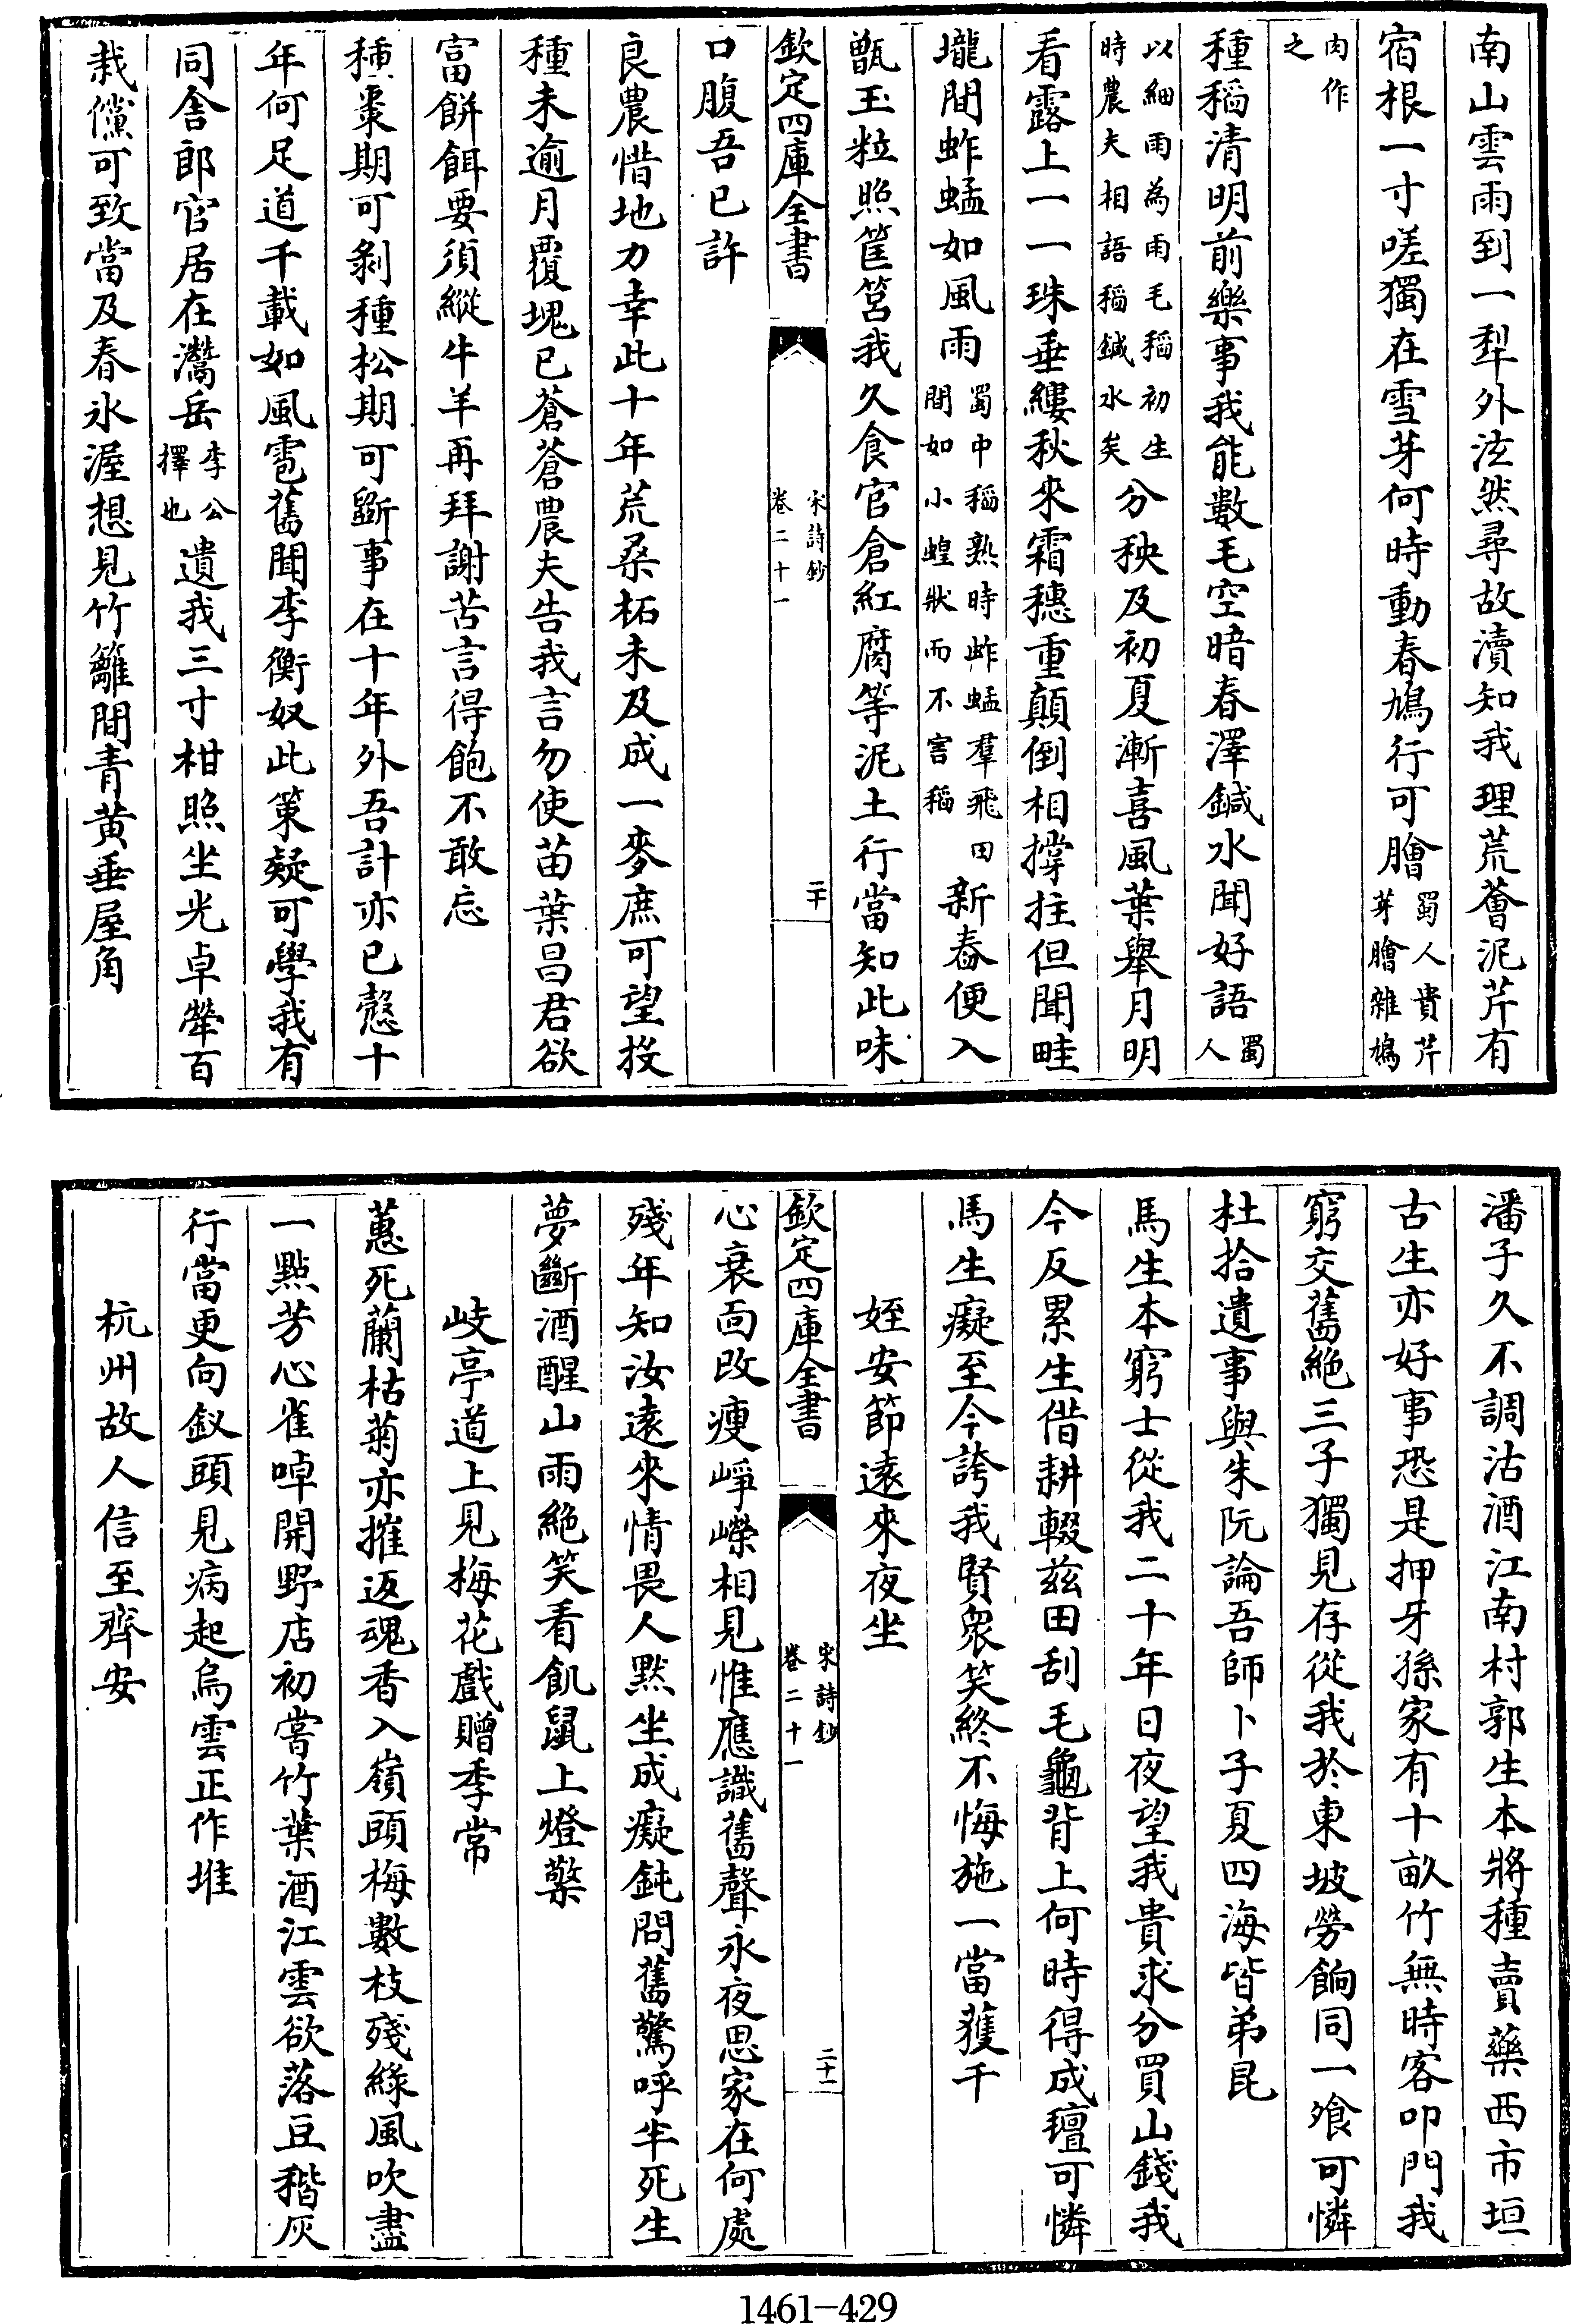 南山雲雨到一犁外泫然尋故瀆知我理荒薈泥芹有
宿根一寸嗟獨在雪芽何時動春鳩行可膾蜀人貴芹芽膾雜鳩
肉作之
種稻清明前樂事我能數毛空暗春澤鍼水聞好語蜀人
以細雨為雨毛稻初生時農夫相語稻鍼水矣分秧及初夏漸喜風葉舉月明
看露上一一珠垂縷秋來霜穗重顛倒相撐拄但聞畦
壠間蚱蜢如風雨蜀中稻熟時蚱蜢羣飛田間如小蝗狀而不害稻新舂便入
甑玉粒照筐筥我久食官倉紅腐等泥土行當知此味
欽定四庫全書
宋詩鈔
卷二十一
二十
口腹吾已許
良農惜地力幸此十年荒桑柘未及成一麥庶可望投
種未逾月覆塊已蒼蒼農夫告我言勿使苗葉昌君欲
富餅餌要須縱牛羊再拜謝苦言得飽不敢忘
種棗期可剝種松期可斵事在十年外吾計亦已慤十
年何足道千載如風雹舊聞李衡奴此策疑可學我有
同舍郎官居在灊岳李公擇也遺我三寸柑照坐光卓犖百
栽儻可致當及春氷渥想見竹籬間青黃垂屋角
潘子久不調沽酒江南村郭生本將種賣藥西市垣
古生亦好事恐是押牙孫家有十畝竹無時客叩門我
窮交舊絶三子獨見存從我於東坡勞餉同一飱可憐
杜拾遺事與朱阮論吾師卜子夏四海皆弟昆
馬生本窮士從我二十年日夜望我貴求分買山錢我
今反累生借耕輟兹田刮毛龜背上何時得成氊可憐
馬生癡至今誇我賢衆笑終不悔施一當獲千
姪安節遠來夜坐
欽定四庫全書
宋詩鈔
卷二十一
二十一
心衰面改瘦崢嶸相見惟應識舊聲永夜思家在何處
殘年知汝遠來情畏人默坐成癡鈍問舊驚呼半死生
夢斷酒醒山雨絶笑看飢鼠上燈檠
岐亭道上見梅花戲贈季常
蕙死蘭枯菊亦摧返魂香入嶺頭梅數枝殘綠風吹盡
一點芳心雀啅開野店初嘗竹葉酒江雲欲落豆稭灰
行當更向釵頭見病起烏雲正作堆
杭州故人信至齊安
1461-429